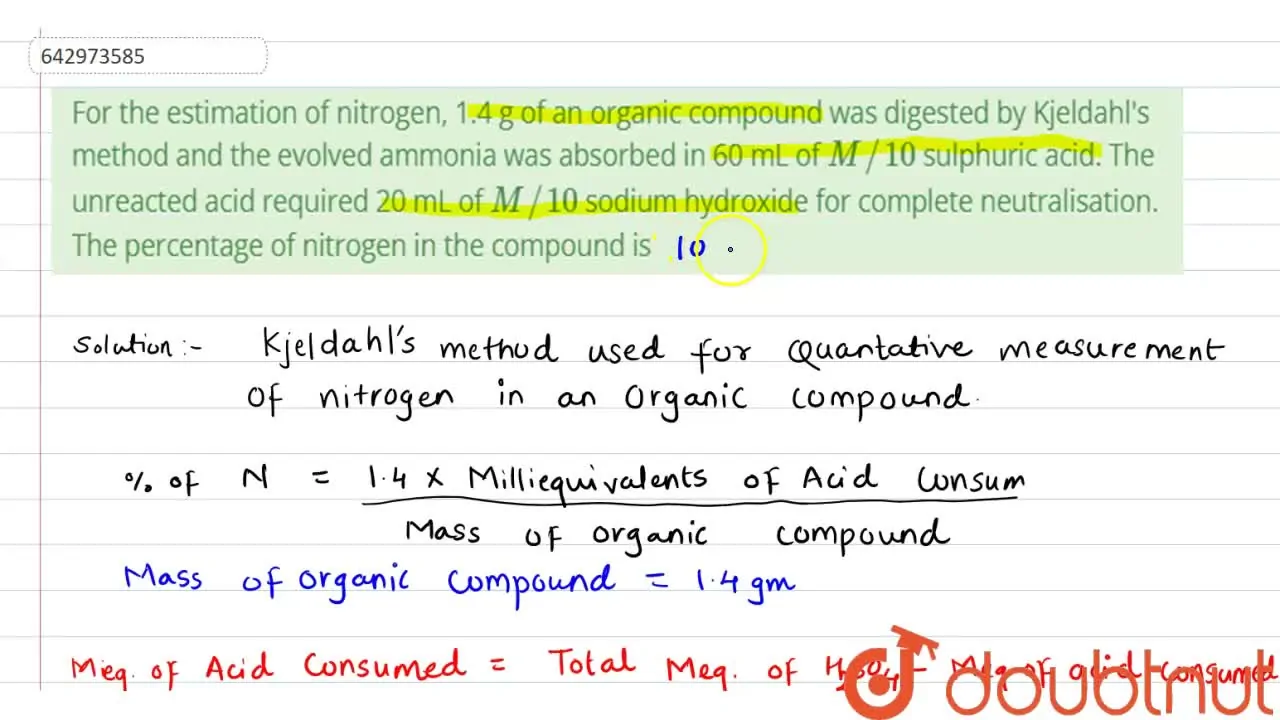 642973585
For the estimation of nitrogen, 1.4 g of an organic compound was digested by Kjeldahl's
method and the evolved ammonia was absorbed in 60 mL of M/10 sulphuric acid. The
unreacted acid required 20 mL of M/10 sodium hydroxide for complete neutralisation.
The percentage of nitrogen in the compound is 10
Solution:- Kjeldahl's method used for Quantative measurement
of nitrogen in an organic compound.
% of N = 1.4 x Milliequivalents of Acid Consum
Mass of organic compound
Mass of organic compound = 1.4 gm
Meq. of Acid Consumed = Total Meq. of H2SO4 - Meq of acid consumed
doubtnut